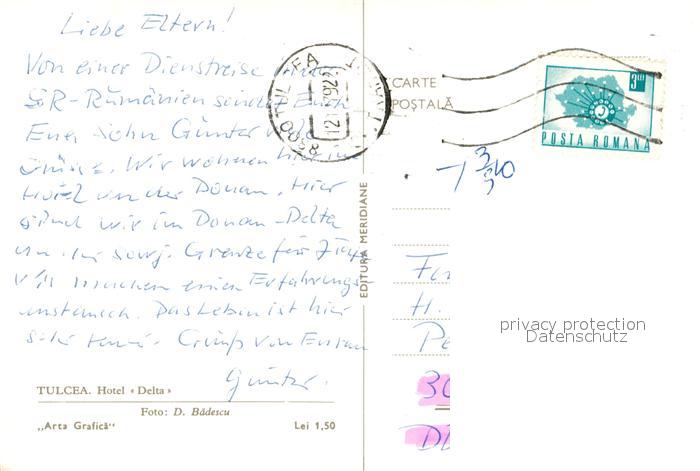 Liebe Eltern!
Von einer Dienstreise
SR-Rumänien sendet Euch
Euer Sohn Günter
Grüße. Wir wohnen hier im
Hotel an der Donau. Hier
sind wir im Donau-Delta
an der sowj. Grenze für
machen einen Erfahrungs-
austausch. Das Leben ist hier
sehr teuer. Gruß von Eurem
Günter.
TULCEA. Hotel «Delta»
Foto: D. Bădescu
„Arta Grafică“ Lei 1,50
EDITURA MERIDIANE
8800 TULCEA
CARTE
POȘTALĂ
POSTA ROMANA
H.
30
privacy protection
Datenschutz